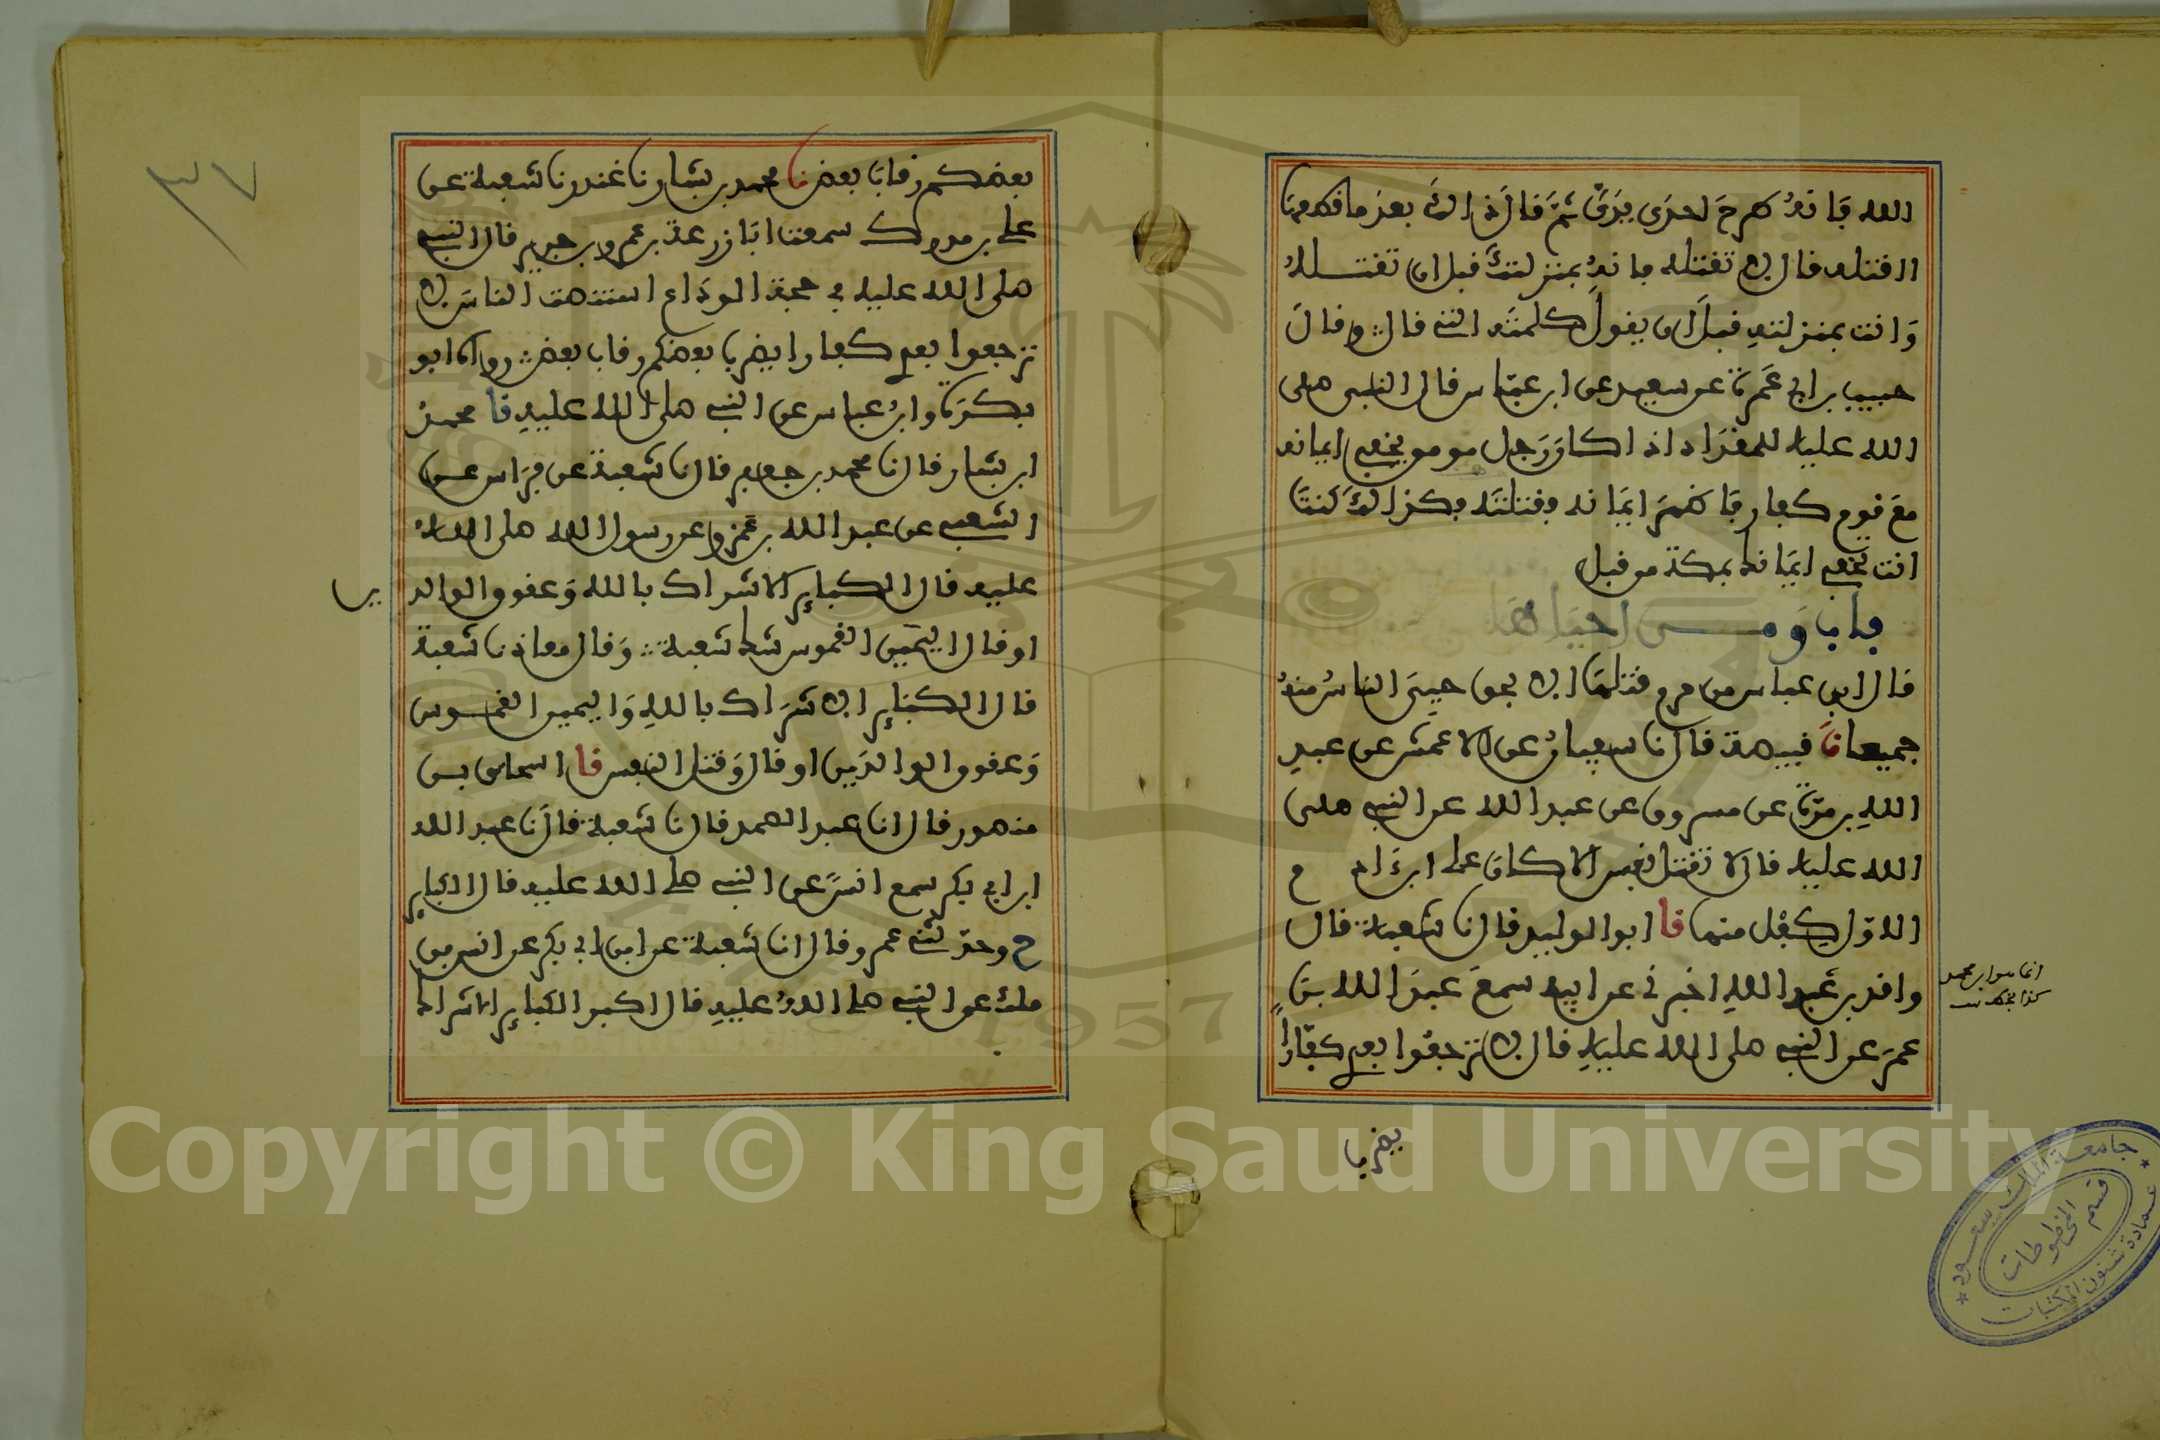 الله فانه طرح احدى يدي ثم قال ذلك بعد ما قطعها
اقتله قال لا تقتله فانه بمنزلتك قبل ان تقتله
وانت بمنزلته قبل ان يقول كلمته التي قال وقال
حبيب بن ابي عمرة عن سعيد عن ابن عباس قال النبي صلى
الله عليه للمقداد اذا كان رجل مومن يخفي ايمانه
مع قوم كفار فاظهر ايمانه فقتلته فكذلك كنت
انت تخفي ايمانك بمكة من قبل
باب ومن احياها
قال ابن عباس من حرم قتلها الا بحق حيي الناس منه
جميعا نا قبيصة قال نا سفيان عن الاعمش عن عبد
الله بن مرة عن مسروق عن عبد الله عن النبي صلى
الله عليه قال لا تقتل نفس الا كان على ابن ادم
الاول كفل منها نا ابو الوليد قال نا شعبة قال
واقد بن عبد الله اخبرني عن ابيه سمع عبد الله بن
عمر عن النبي صلى الله عليه قال لا ترجعوا بعدي كفارا
يضرب
بعضكم رقاب بعض نا محمد بن بشار نا غندر نا شعبة عن
علي بن مدرك سمعت ابا زرعة بن عمرو بن جرير قال النبي
صلى الله عليه في حجة الوداع استنصت الناس لا
ترجعوا بعدي كفارا يضرب بعضكم رقاب بعض رواه ابو
بكرة وابن عباس عن النبي صلى الله عليه نا محمد
ابن بشار قال نا محمد بن جعفر قال نا شعبة عن فراس عن
الشعبي عن عبد الله بن عمرو عن رسول الله صلى الله
عليه قال الكباير الاشراك بالله وعقوق الوالدين
او قال اليمين الغموس شك شعبة وقال معاذ نا شعبة
قال الكباير الاشراك بالله واليمين الغموس
وعقوق الوالدين او قال وقتل النفس نا اسحاق بن
منصور قال انا عبد الصمد قال نا شعبة قال نا عبد الله
ابن ابي بكر سمع انسا عن النبي صلى الله عليه قال الكباير
ح وحدثني عمرو قال انا شعبة عن ابن ابي بكر عن انس بن
ملك عن النبي صلى الله عليه قال اكبر الكباير الاشراك
٣٧
Copyright © King Saud University
1957
جامعة الملك سعود
عمادة شئون المكتبات
قسم المخطوطات